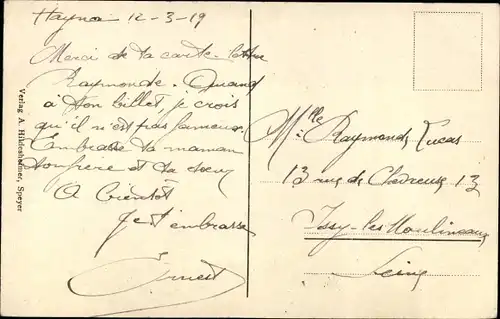 Hayna 12-3-19
Merci de ta carte-lettre
Raymonde. Quand
à ton billet, je crois
qu'il n'est pas fameux.
Embrasse ta maman
ton frère et ta soeur
A bientôt
Je t'embrasse
Ernest
Mlle Raymonde Lucas
13 rue de Chevreuse 13
Issy-les-Moulineaux
Seine
Verlag A. Hildesheimer, Speyer